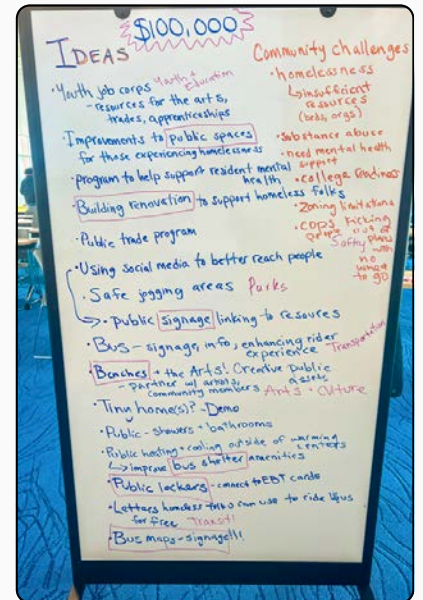 $100,000
IDEAS
• Youth job corps Youth + Education
- resources for the arts,
trades, apprenticeships
• Improvements to public spaces
for those experiencing homelessness
• program to help support resident mental
health
• Building renovation to support homeless folks
• Public trade program
• Using social media to better reach people
• Safe jogging areas Parks
→ • public signage linking to resoures
• Bus - signage, info, enhancing rider
experience Transportation
• Benches + the Arts! Creative public
assets
- partner w/ artists,
community members Arts + Culture
• Tiny home(s)? - Demo
• Public - showers + bathrooms
• Public heating + cooling outside of warming
centers
↳ improve bus shelter amenities
• Public lockers - connect to EBT cards
• Letters homeless folks can use to ride bus
for free Transit!
• Bus maps - signage!!!
Community challenges
• homelessness
↳ insufficient
resources
(beds, orgs)
• Substance abuse
• need mental health
support
• college readiness
• Zoning limitations
• COPS kicking
people out of
places
with
no
where
to go